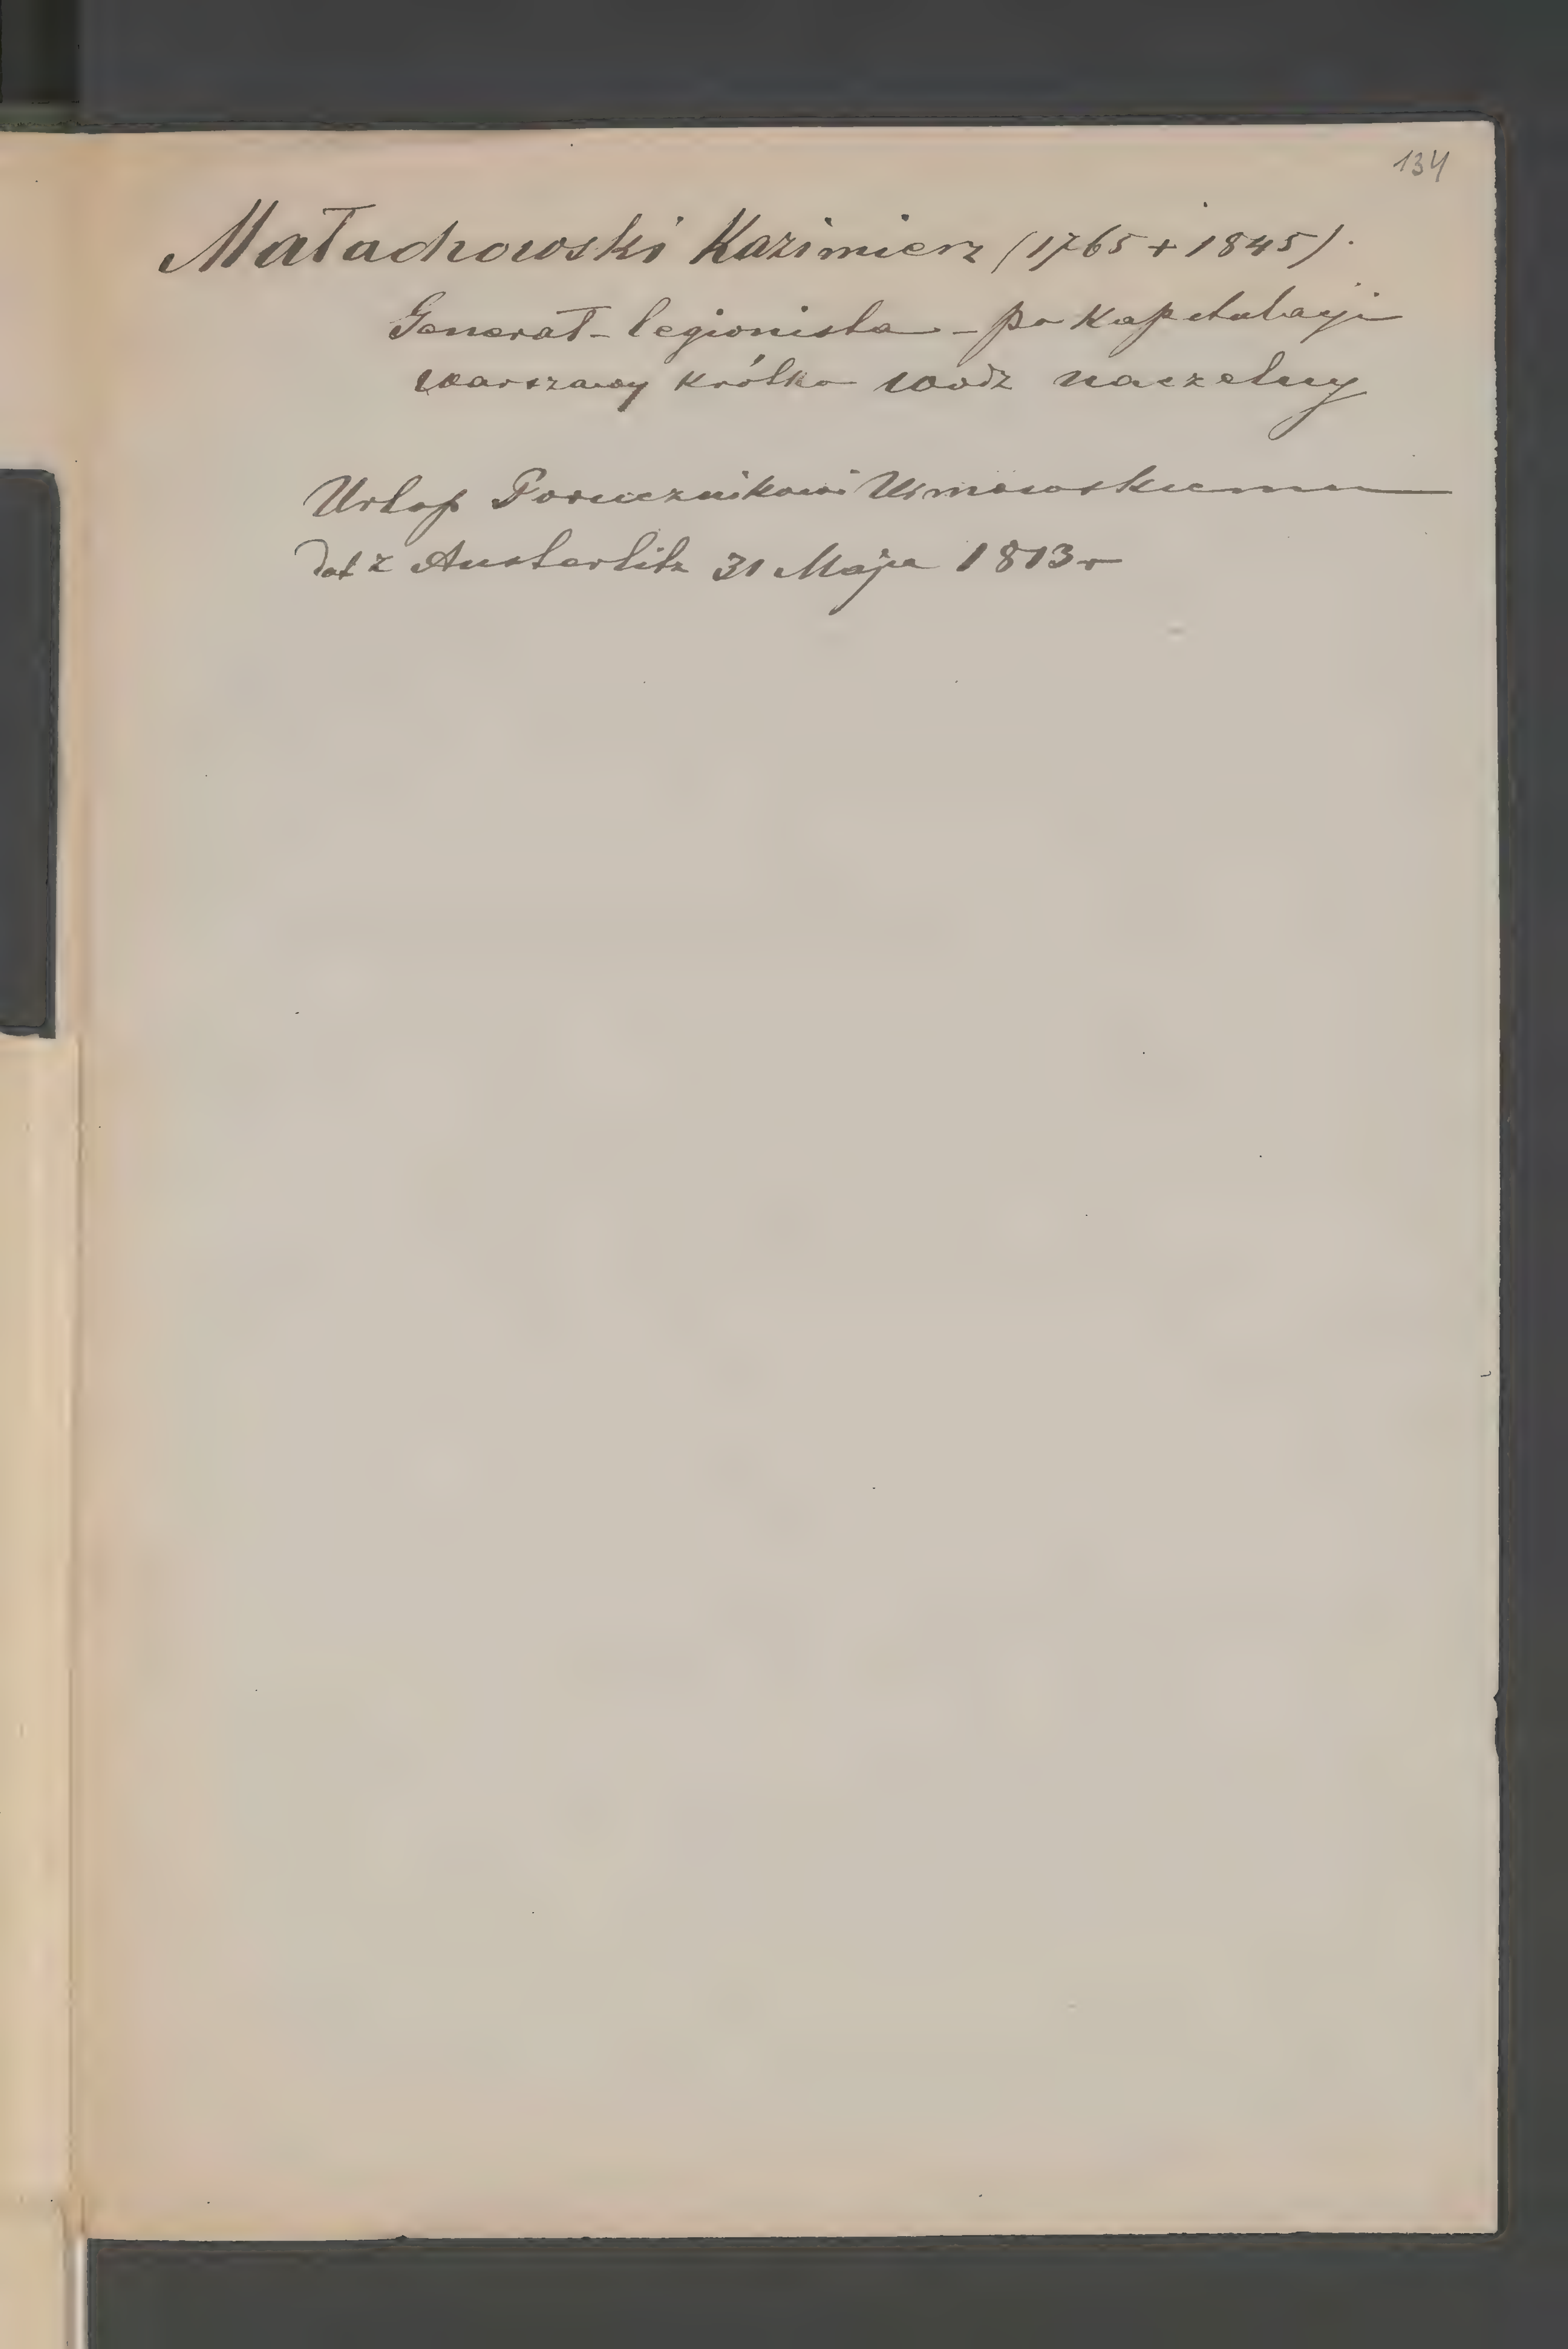 134
Małachowski Kazimierz (1765 + 1845).
Generał - legionista - po Kapitulacyi
Warszawy krótko wódz naczelny
Urlop Porucznikowi
dat z Austerlitz 31 Maja 1813 r